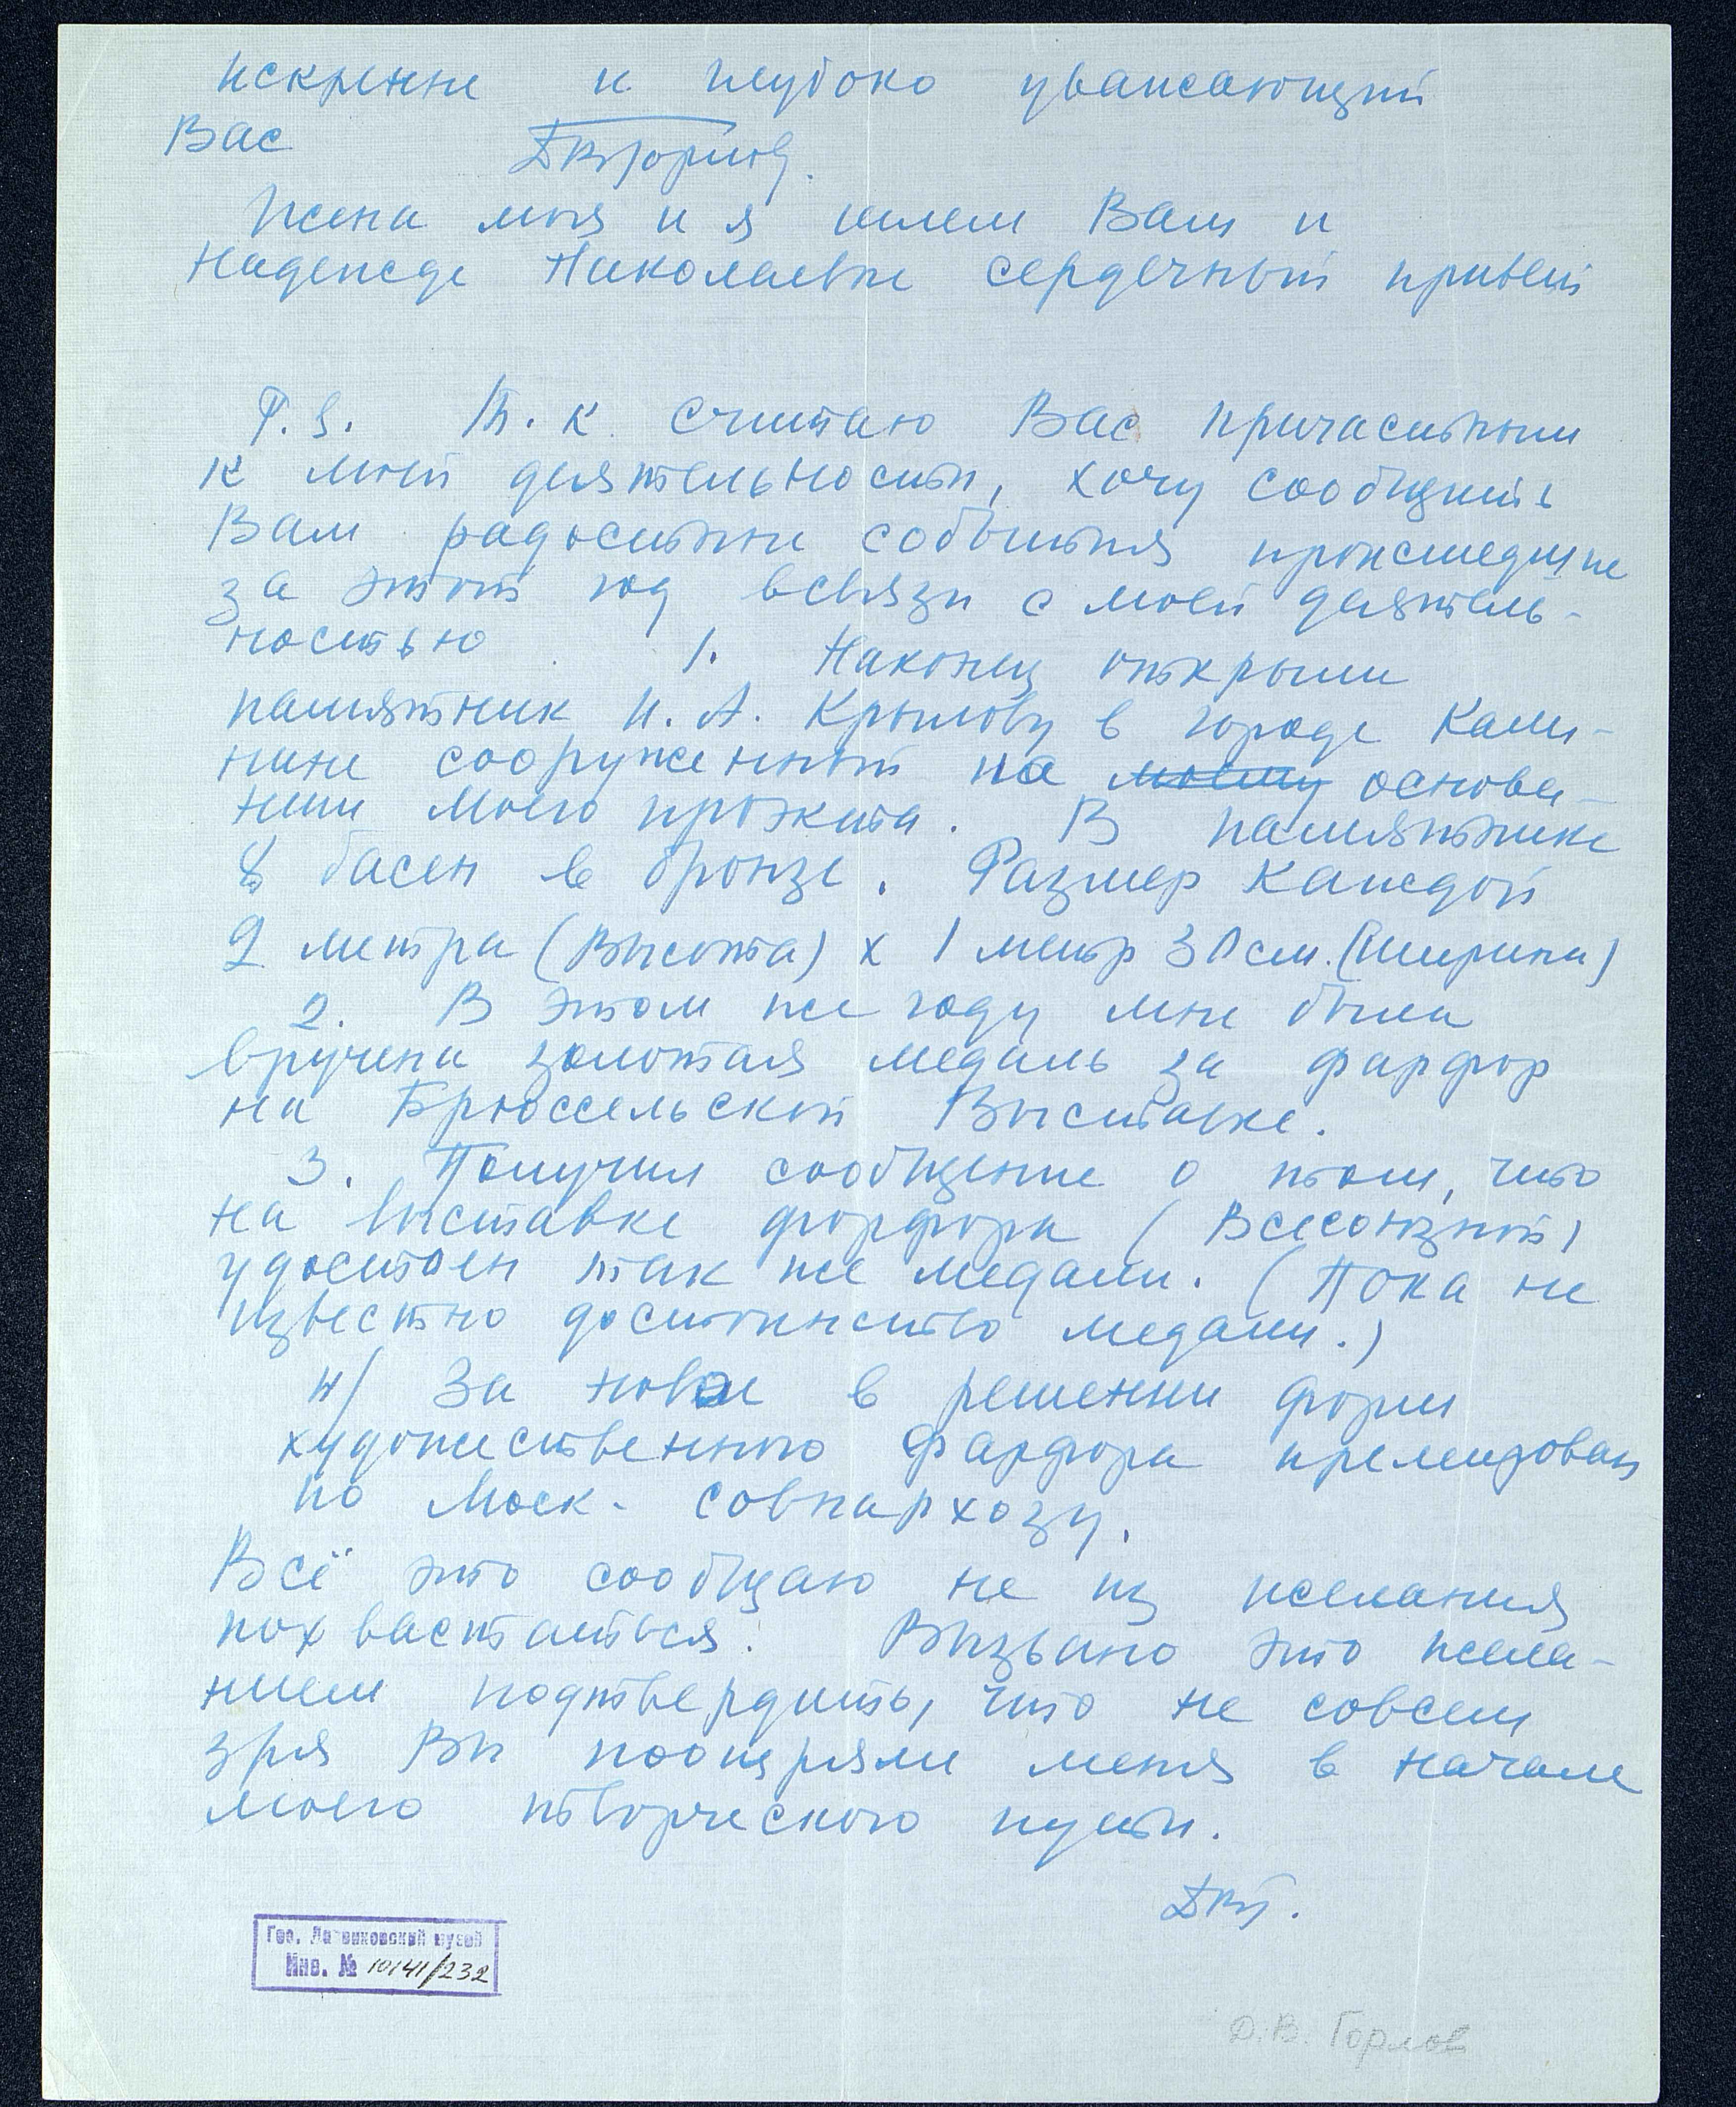 искренне и глубоко уважающий
Вас ДВГорлов.
Жена моя и я шлем Вам и
Надежде Николаевне сердечный привет
P.S. Т.к. считаю Вас причастным
к моей деятельности, хочу сообщить
Вам радостные события происшедшие
за этот год всвязи с моей деятель-
ностью 1. Наконец открыли
памятник И.А. Крылову в городе Кали-
нине сооруженный на моему основа-
нии моего проэкта. В памятнике
8 басен в бронзе. Размер каждой
2 метра (высота) х 1 метр 30 см. (ширина)
2. В этом же году мне была
вручена золотая медаль за фарфор
на Брюссельской Выставке.
3. Получил сообщение о том, что
на выставке форфора (Всесоюзной)
удостоен так же медали. (Пока не
известно достоинство медали.)
4/ За новое в решении форм
художественного фарфора премирован
по Моск- совнархозу.
Всё это сообщаю не из желания
похвастаться. Вызвано это жела-
нием подтвердить, что не совсем
зря Вы поощряли меня в начале
моего творческого пути.
ДВГ.
Гос. Лазенковский музей
Инв. № 10141/232
Д.В. Горлов